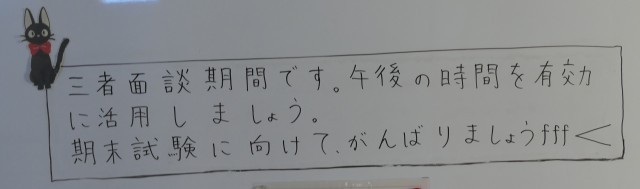 三者面談期間です。午後の時間を有効
に活用しましょう。
期末試験に向けて、がんばりましょうfff